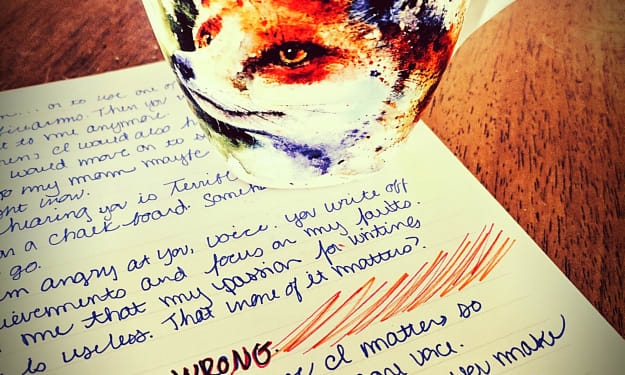 ... or to use one of
firearms. Then you w
t to me anymore.
hen, I would also h
would move on to
o my mom maybe
ght now.
hearing you is Terrible
on a chalk board. Someh
go.
m angry at you, voice. you write off
ievements and focus on my faults.
me that my passion for writing
is useless. That none of it matters?
WRONG.
I matters so
voice.
ver make